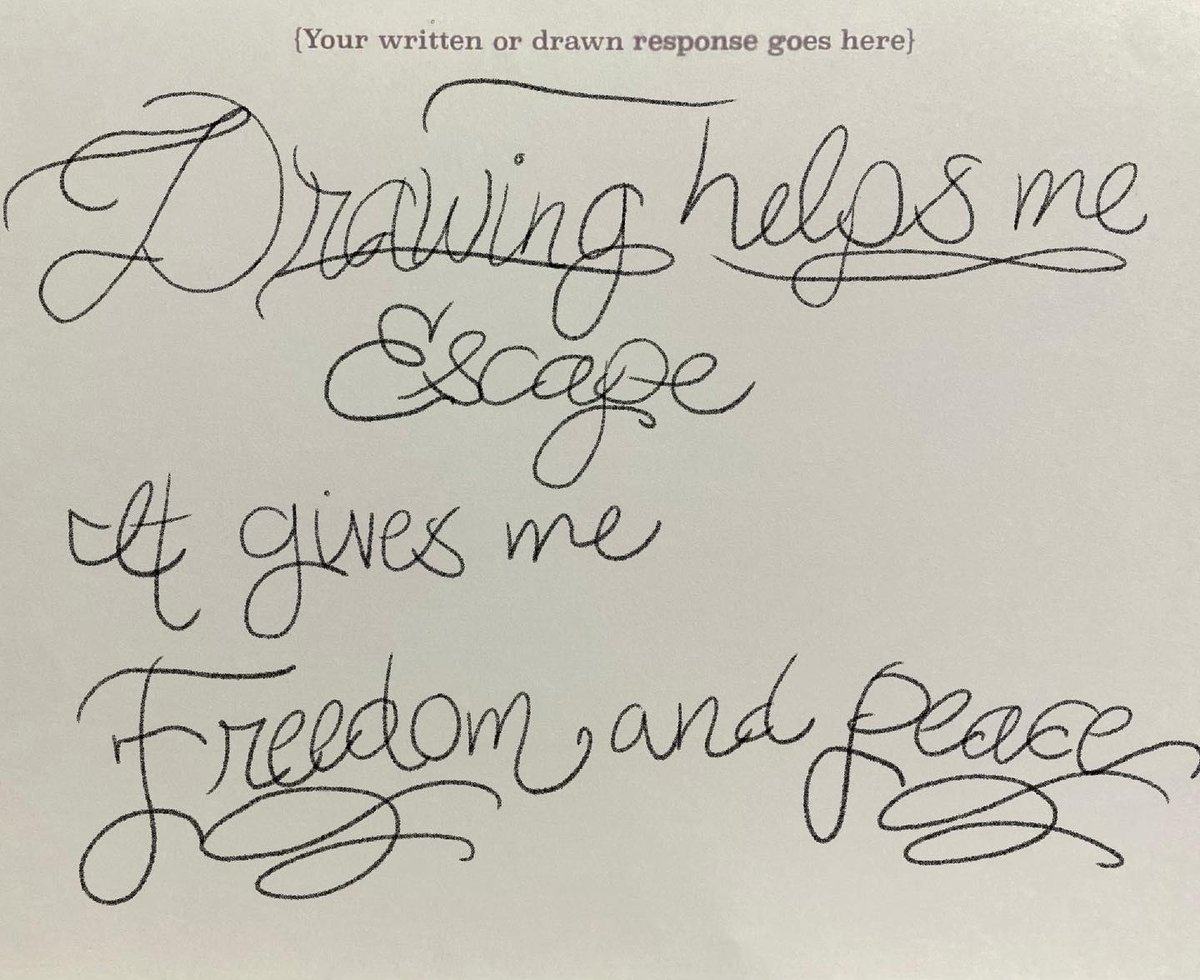 {Your written or drawn response goes here}
Drawing helps me
Escape
It gives me
Freedom, and peace